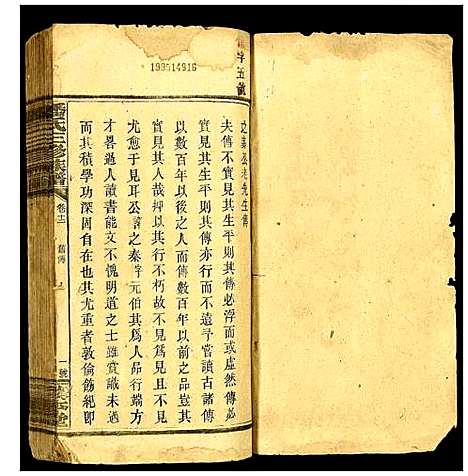 199514916
文泰公老先生傳
夫傳不實見其生平則其傳必浮而或虛然傳必
實見其生平則其傳亦行而不遠予嘗讀古諸傳
以數百年以後之人而傳數百年以前之品豈其
實見其人哉抑以其行不朽故不見為見且不見
尤愈于見耳公諱之泰字元伯其為人品行端方
才畧過人讀書能文不愧明道之士雖賞識未遇
而其積學功深固自在也其尤重者敦倫飭紀即
氏三修族譜
卷十二
舊傳
一號